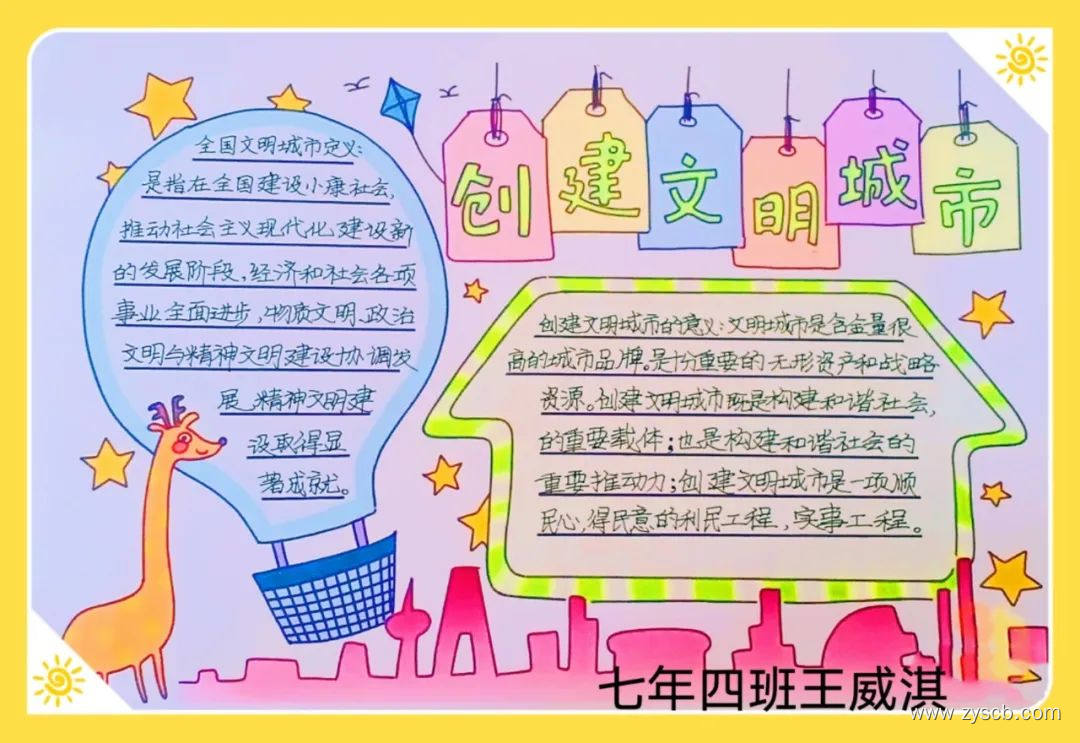 创建文明城市
全国文明城市定义：
是指在全国建设小康社会，
推动社会主义现代化建设新
的发展阶段，经济和社会各项
事业全面进步，物质文明、政治
文明与精神文明建设协调发
展，精神文明建
设取得显
著成就。
创建文明城市的意义：文明城市是含金量很
高的城市品牌。是十分重要的无形资产和战略
资源。创建文明城市既是构建和谐社会，
的重要载体；也是构建和谐社会的
重要推动力；创建文明城市是一项顺
民心，得民意的利民工程，实事工程。
七年四班王威淇
www.zyscb.com